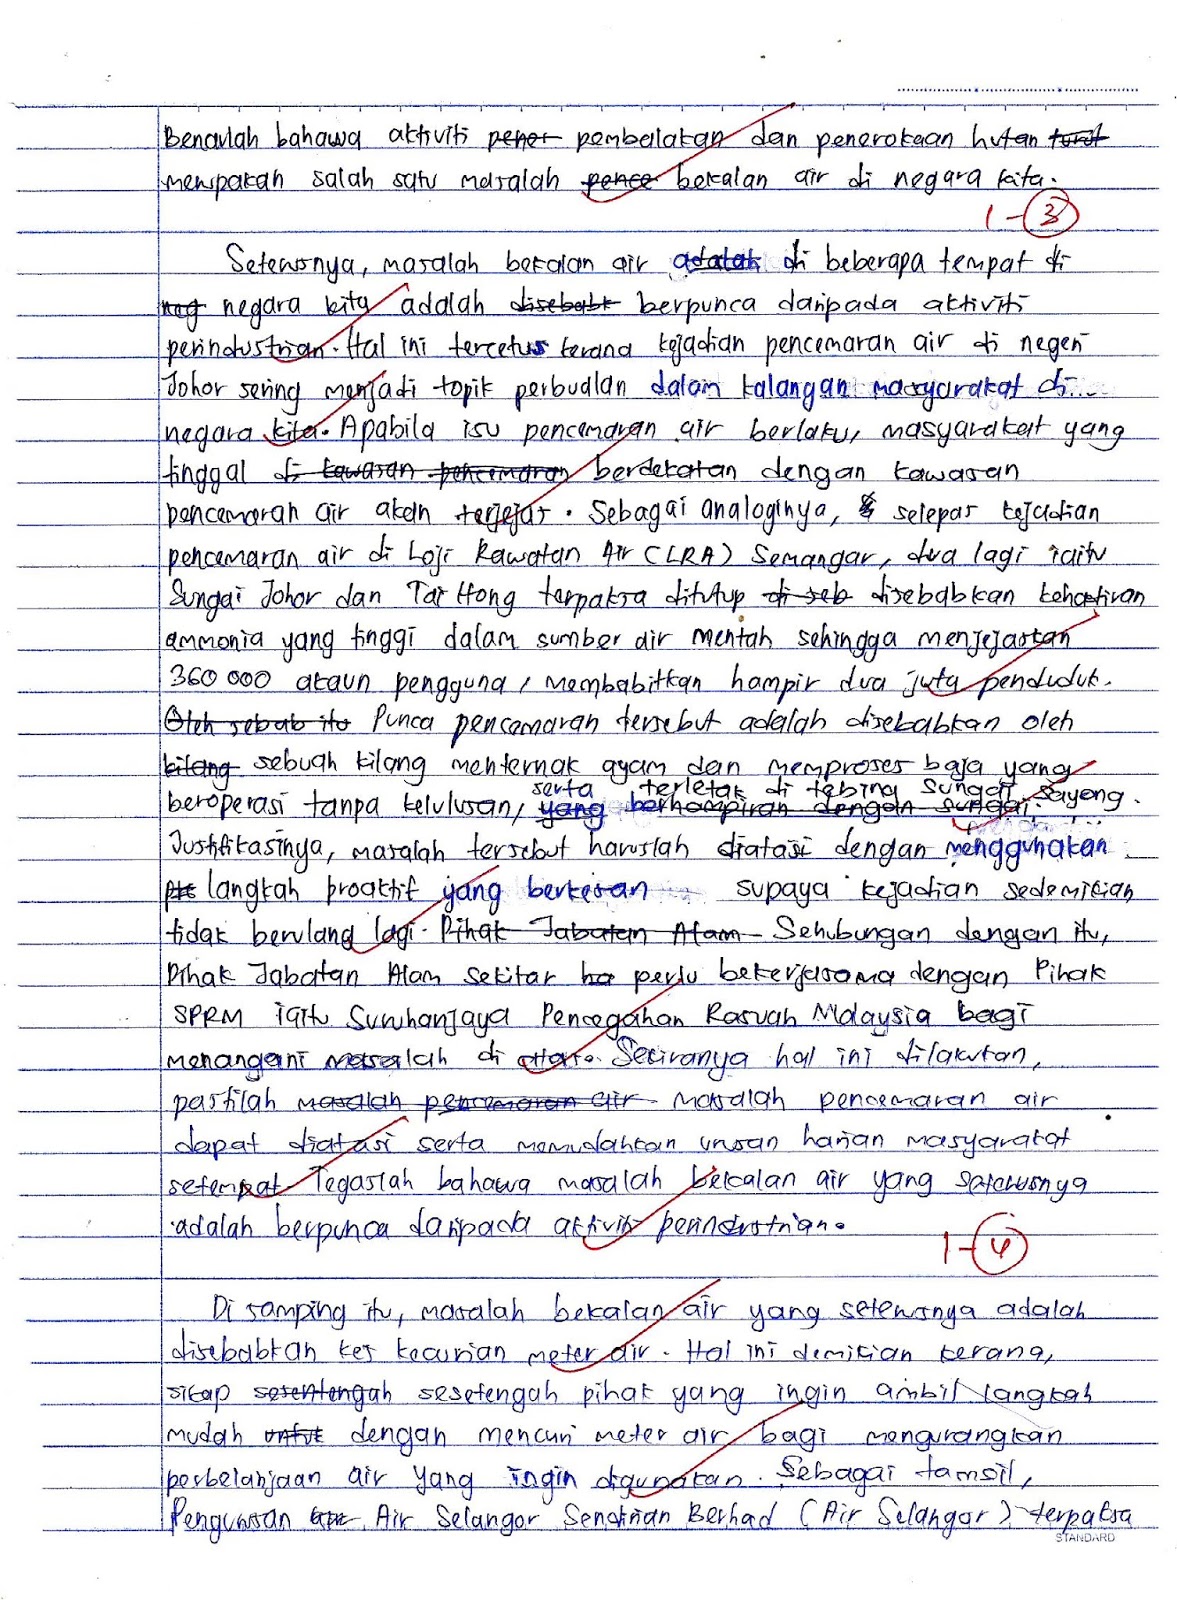 Benarlah bahawa aktiviti pener pembalakan dan penerokaan hutan turut
merupakan salah satu masalah pence bekalan air di negara kita.
1 - 3
Seterusnya, masalah bekalan air adalah di beberapa tempat di
neg negara kita adalah disebabk berpunca daripada aktiviti
perindustrian. Hal ini tercetus kerana kejadian pencemaran air di negeri
Johor sering menjadi topik perbualan dalam kalangan masyarakat di
negara kita. Apabila isu pencemaran air berlaku, masyarakat yang
tinggal di kawasan pencemaran berdekatan dengan kawasan
pencemaran air akan terjejas. Sebagai analoginya, selepas kejadian
pencemaran air di Loji Rawatan Air (LRA) Semangar, dua lagi iaitu
Sungai Johor dan Tai Hong terpaksa ditutup di seb disebabkan kehadiran
ammonia yang tinggi dalam sumber air mentah sehingga menjejaskan
360 000 akaun pengguna, membabitkan hampir dua juta penduduk.
Oleh sebab itu Punca pencemaran tersebut adalah disebabkan oleh
kilang sebuah kilang menternak ayam dan memproses baja yang
serta terletak di tebing Sungai Sayong.
beroperasi tanpa kelulusan, yang berhampiran dengan sungai
Justifikasinya, masalah tersebut haruslah diatasi dengan menggunakan
langkah proaktif yang berkesan supaya kejadian sedemikian
tidak berulang lagi. Pihak Jabatan Alam Sehubungan dengan itu,
Pihak Jabatan Alam Sekitar ha perlu bekerjasama dengan Pihak
SPRM iaitu Suruhanjaya Pencegahan Rasuah Malaysia bagi
menangani masalah di atas. Sekiranya hal ini dilakukan,
pastilah masalah pencemaran air masalah pencemaran air
dapat diatasi serta memudahkan urusan harian masyarakat
setempat. Tegaslah bahawa masalah bekalan air yang seterusnya
adalah berpunca daripada aktiviti perindustrian.
1 - 4
Di samping itu, masalah bekalan air yang seterusnya adalah
disebabkan kes kecurian meter air. Hal ini demikian kerana,
sikap sesentengah sesetengah pihak yang ingin ambil langkah
mudah untuk dengan mencuri meter air bagi mengurangkan
perbelanjaan air yang ingin digunakan. Sebagai tamsil,
Pengurusan Air Selangor Sendirian Berhad (Air Selangor) terpaksa
STANDARD